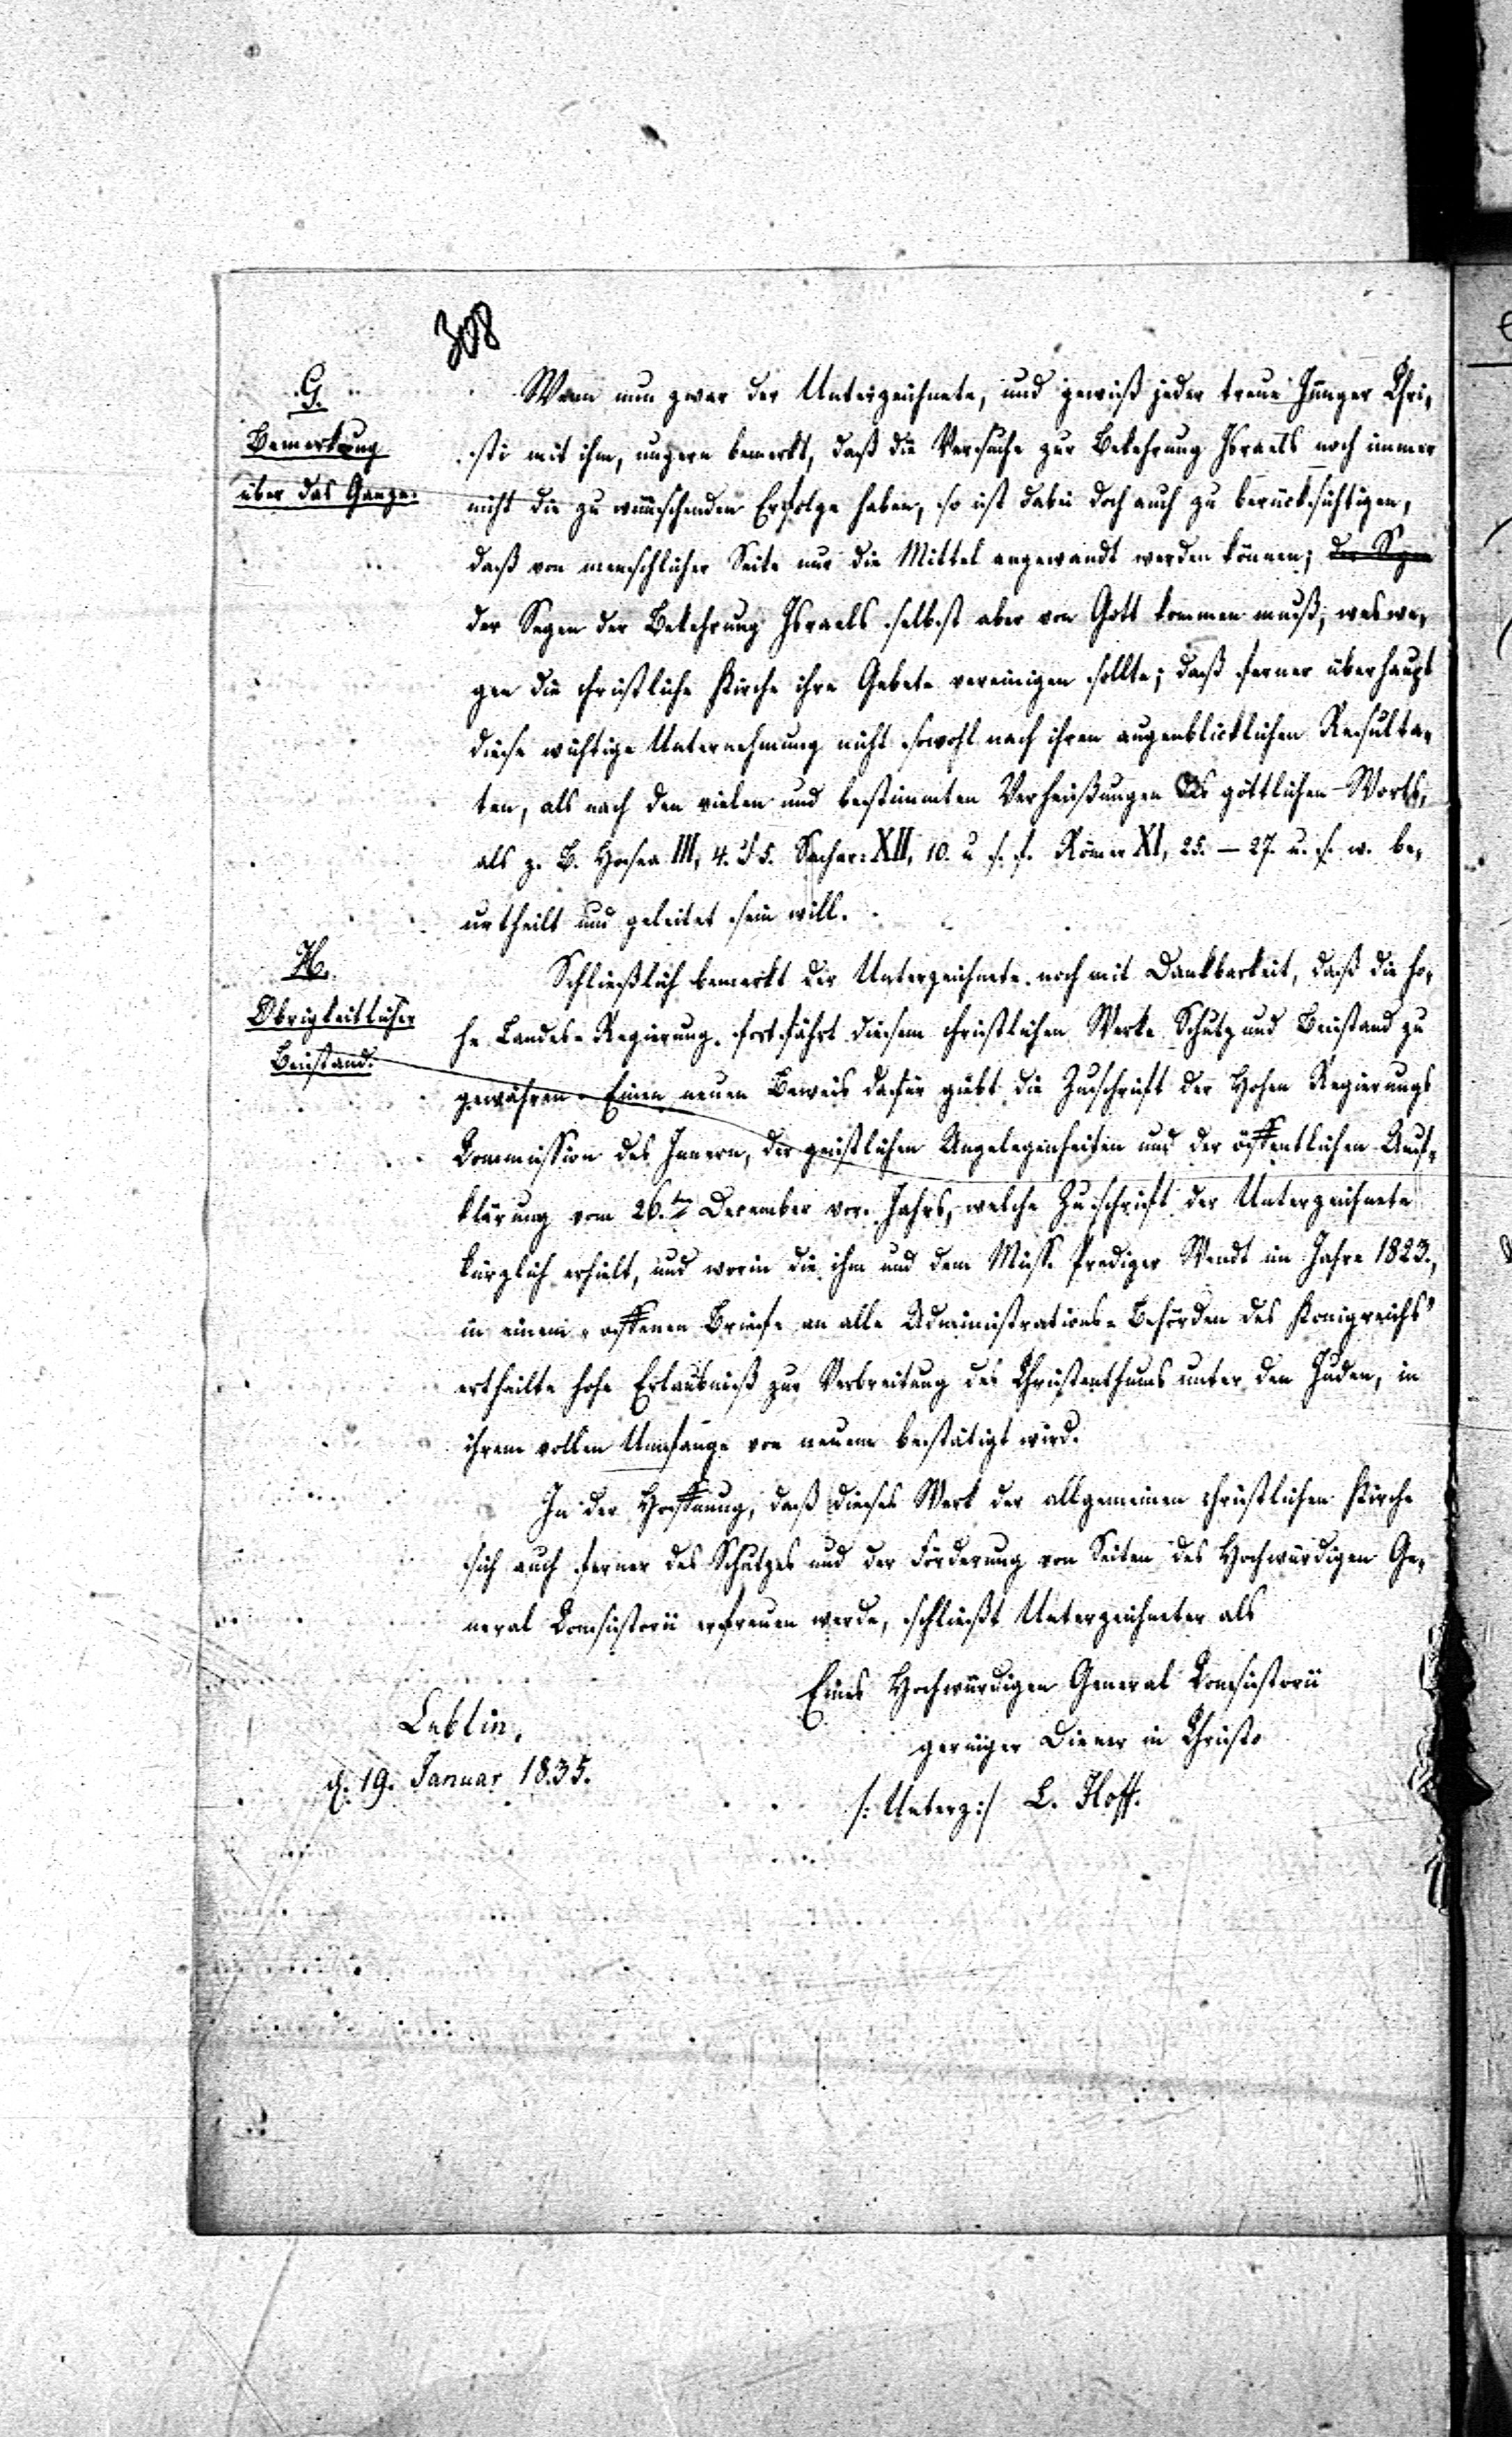 308
G.
Bemerkung
über das Ganze.
Wenn nun zwar der Unterzeichnete, und gewiß jeder treue Jünger Chri-
sti mit ihm, ungern bemerkt, daß die Versuche zur Bekehrung Israels noch immer
nicht die zu wünschenden Erfolge haben, so ist dabei doch auch zu berücksichtigen,
daß von menschlicher Seite nur die Mittel angewandt werden können; der Segen
der Segen der Bekehrung Israels selbst aber von Gott kommen muß, weswe-
gen die christliche Kirche ihre Gebete vereinigen sollte; daß ferner überhaupt
diese wichtige Unternehmung nicht sowohl nach ihren augenblicklichen Resulta-
ten, als nach den vielen und bestimmten Verheißungen des göttlichen Worts,
als z. B. Hosea III, 4. u 5. Sachar: XII, 10. u. s. f. Römer XI, 25. – 27. u. s. w. be-
urtheilt und geleitet sein will.
H.
Obrigkeitlicher
Beistand.
Schließlich bemerkt der Unterzeichnete noch mit Dankbarkeit, daß die ho-
he Landes-Regierung fortfährt diesem christlichen Werke Schutz und Beistand zu
gewähren. Einen neuen Beweis dafür giebt die Zuschrift der Hohen Regierungs
Commission des Innern, der geistlichen Angelegenheiten und der öffentlichen Auf-
klärung vom 26.ten December vor. Jahrs, welche Zuschrift der Unterzeichnete
kürzlich erhielt, und worin die ihm und dem Miss. Prediger Wendt im Jahre 1823.,
in einem „offenen Briefe an alle Administrations-Behörden des Königreichs"
ertheilte hohe Erlaubniß zur Verbreitung des Christenthums unter den Juden, in
ihrem vollen Umfange von neuem bestätigt wird.
In der Hoffnung, daß dieses Werk der allgemeinen christlichen Kirche
sich auch ferner des Schutzes und der Förderung von Seiten des Hochwürdigen Ge-
neral Consistorii erfreuen werde, schließt Unterzeichneter als
Eines Hochwürdigen General Consistorii
geringer Diener in Christo
/: Unterz :/ L. Hoff.
Lublin,
d. 19. Januar 1835.